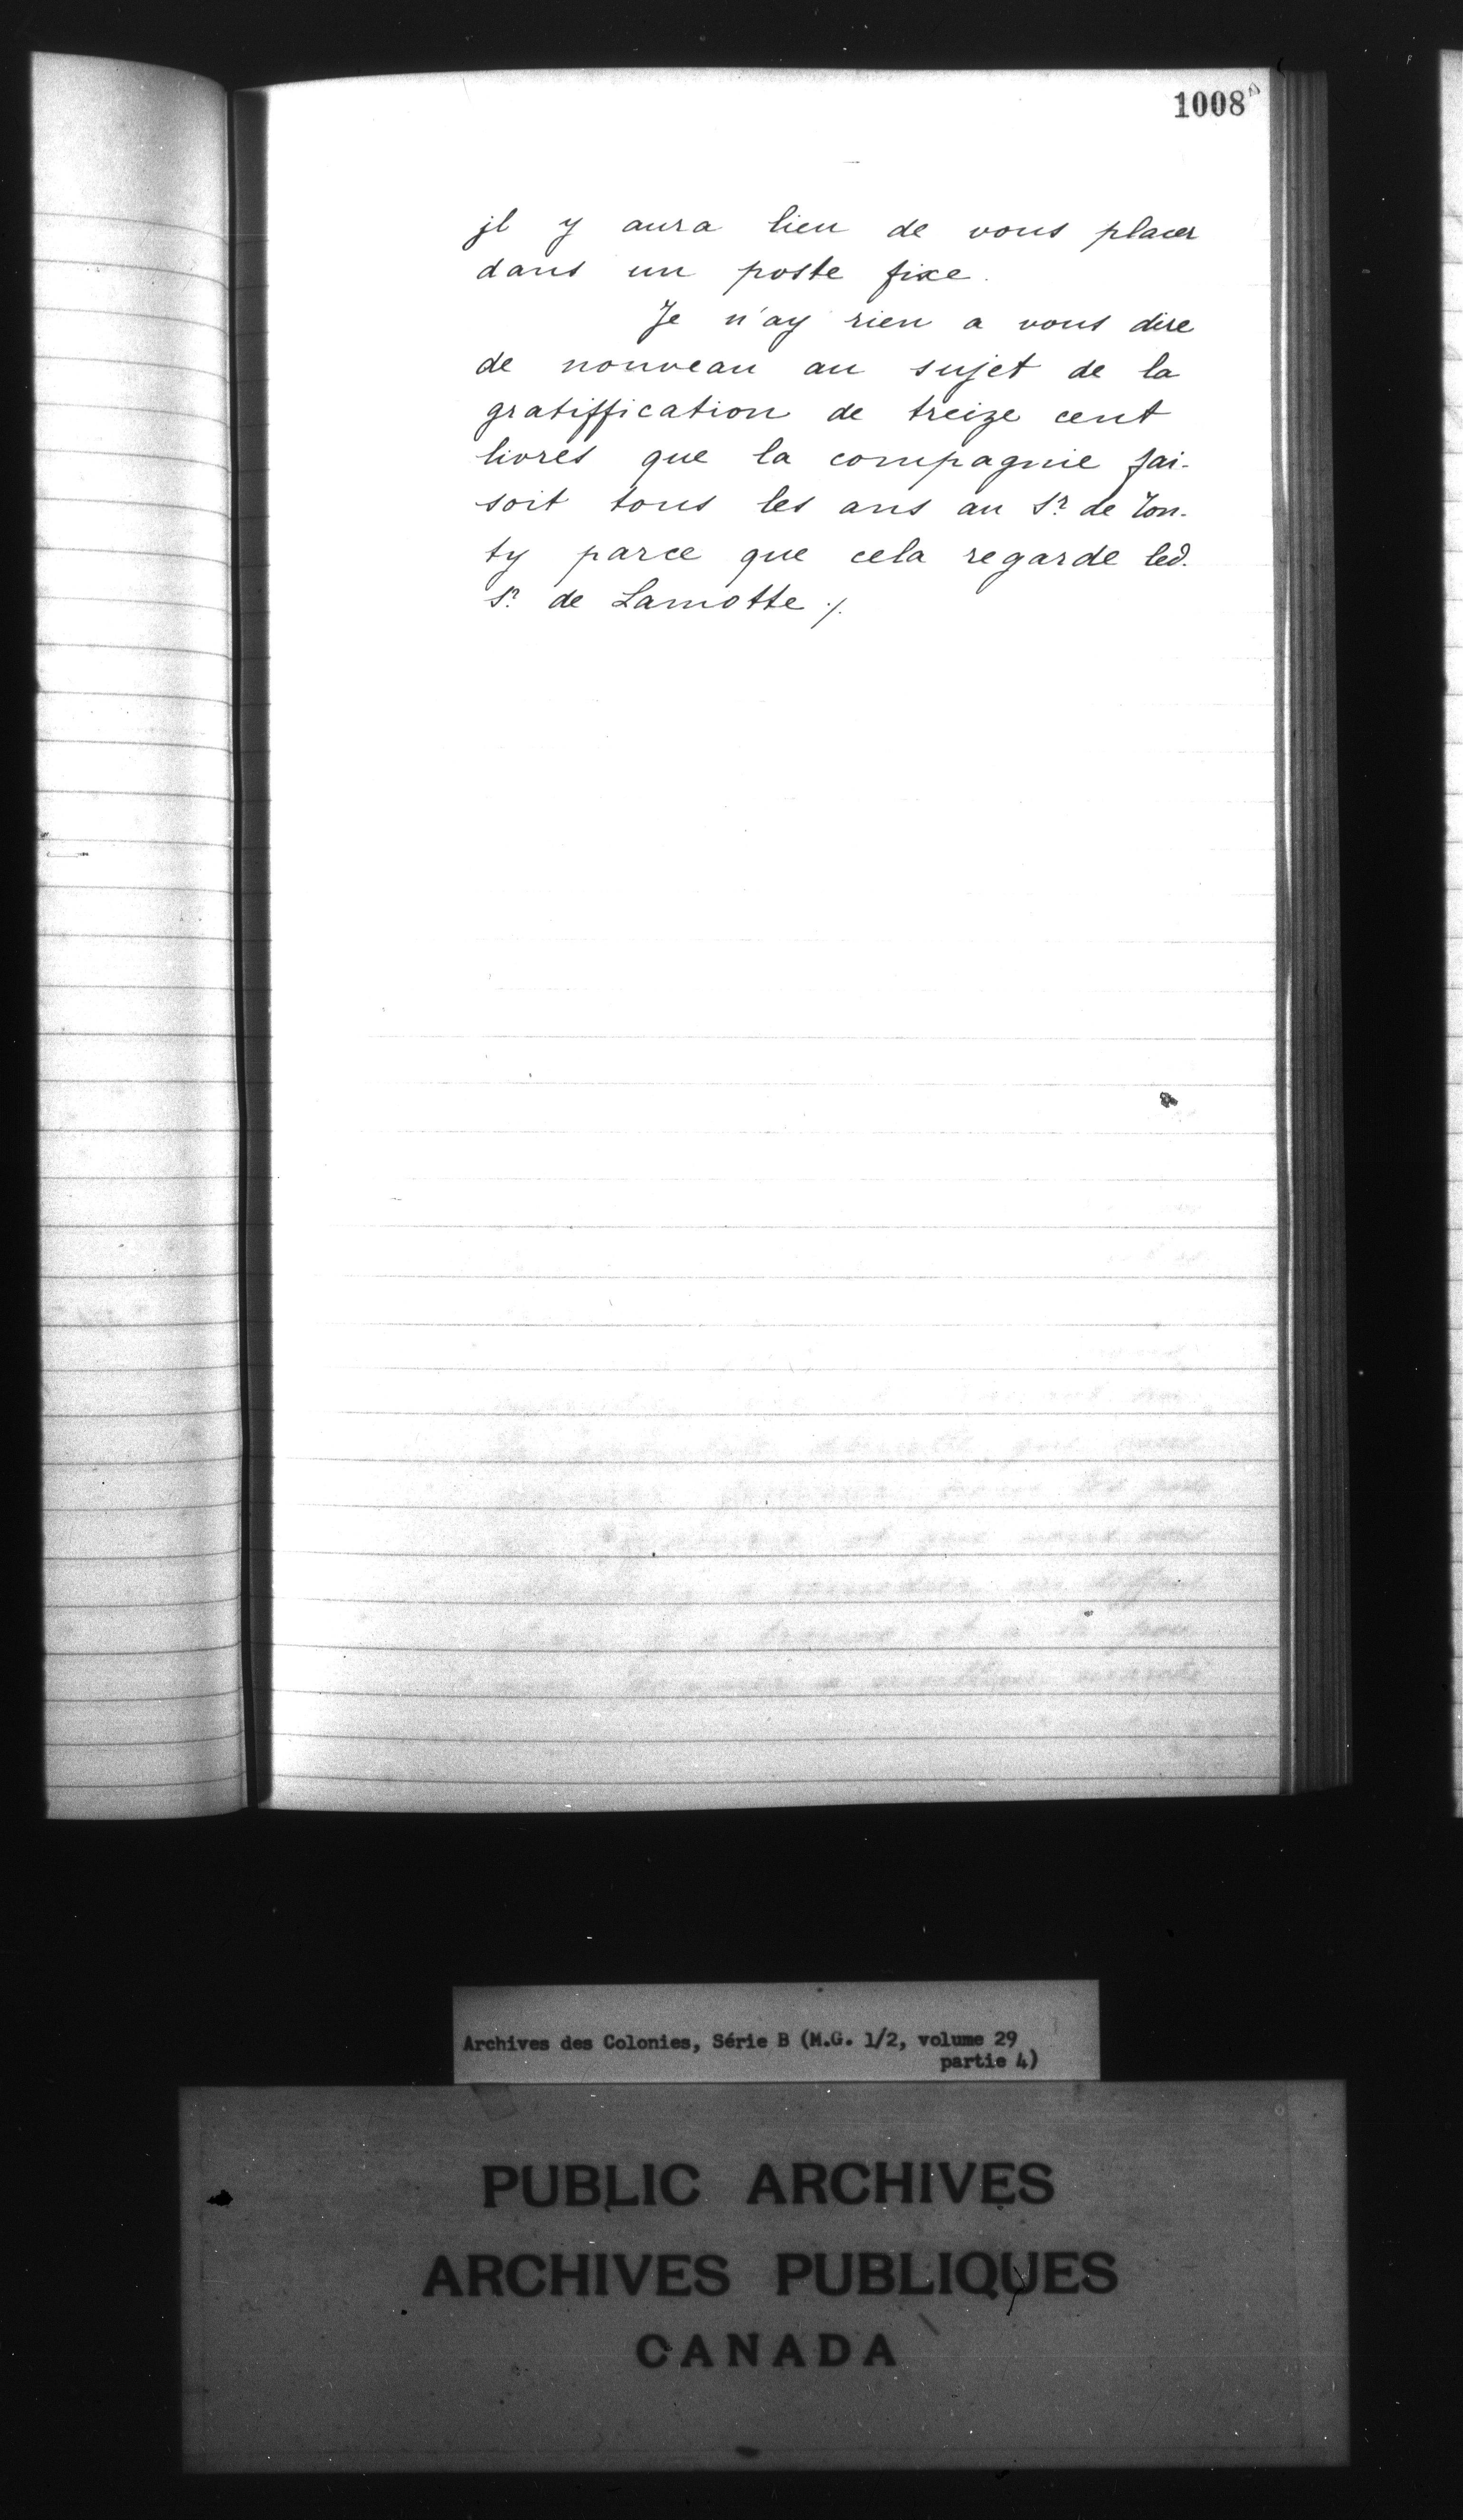 1008
jl y aura lieu de vous placer
dans un poste fixe.
Je n'ay rien a vous dire
de nouveau au sujet de la
gratiffication de treize cent
livres que la compagnie fai-
soit tous les ans au Sr de Ton-
ty parce que cela regarde led.
Sr de Lamotte ./.
Archives des Colonies, Série B (M.G. 1/2, volume 29
partie 4)
PUBLIC ARCHIVES
ARCHIVES PUBLIQUES
CANADA